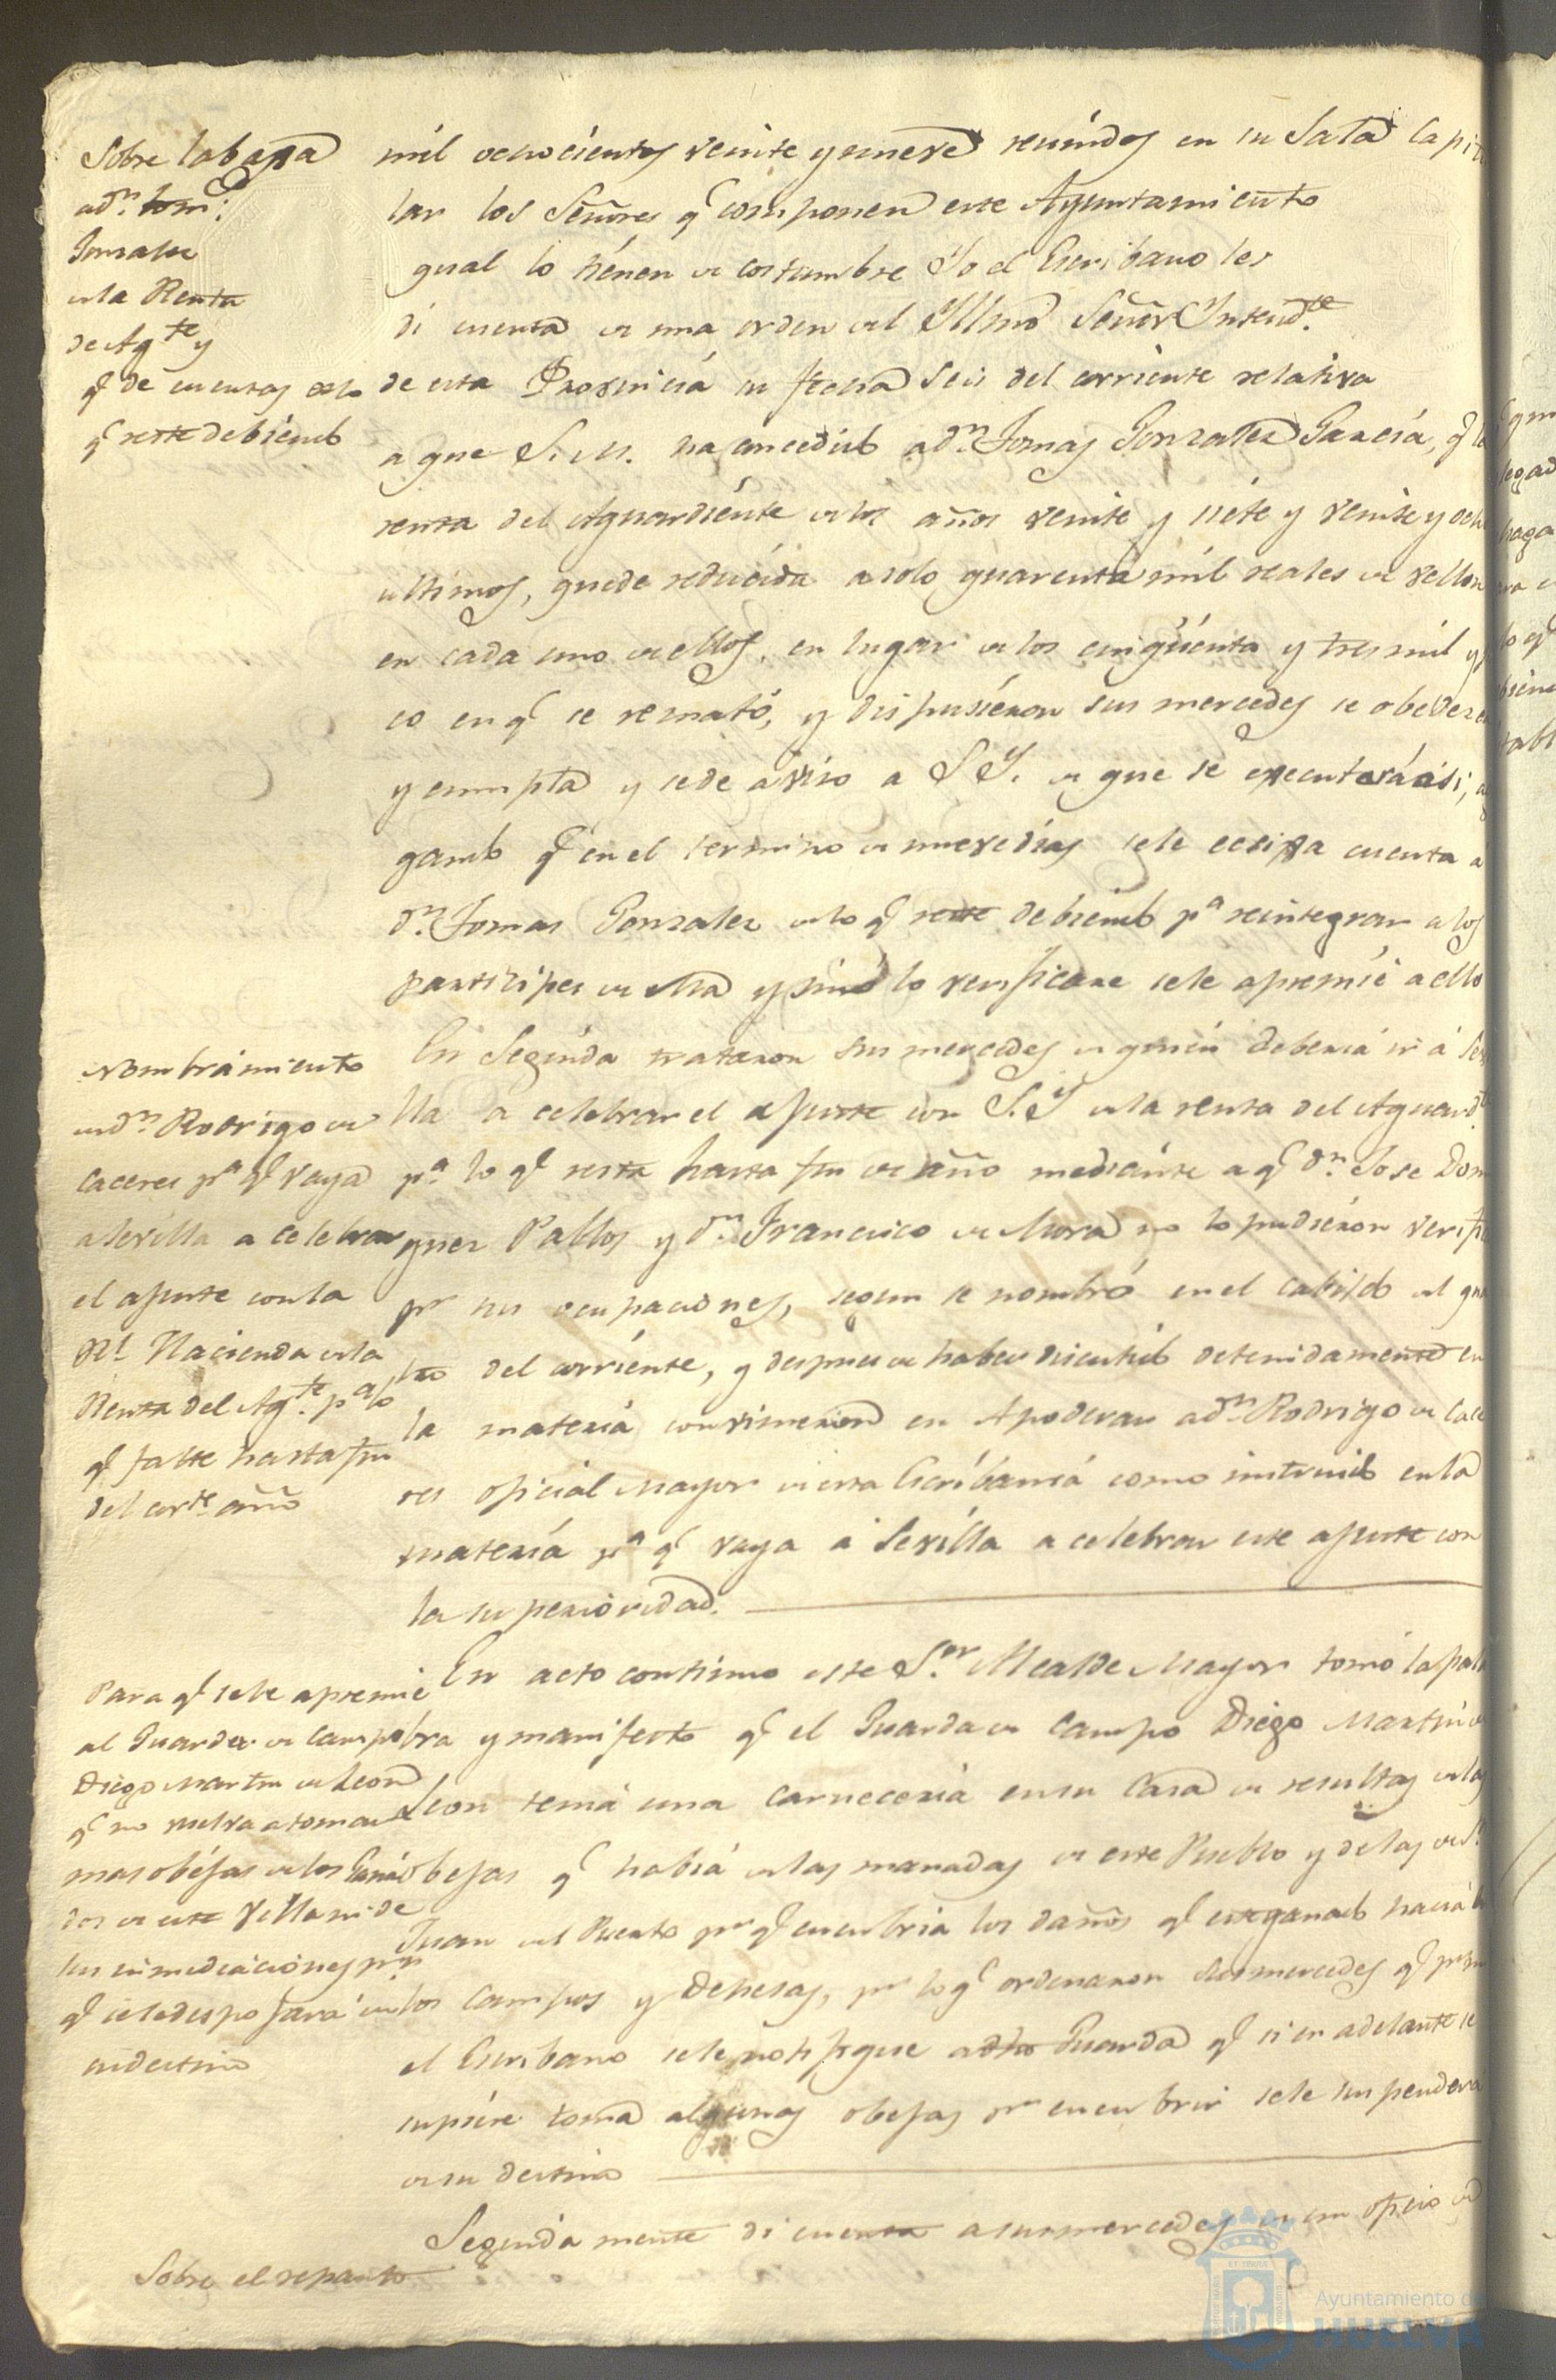 Sobre la baxa
a Dn. Tomas
Gonzalez
de la Renta
de Agte. y
q. de cuentas de lo
q. reste debiendo
mil ochocientos veinte y nueve reunidos en su Sala Capitu
lar los Señores q. componen este Ayuntamiento
qual lo tienen de costumbre Yo el Escribano les
di cuenta de una orden del Yllmo Señor Yntendte.
de esta Provincia su fecha seis del corriente relativa
a que S. M. ha concedido a Dn. Tomas Gonzalez Garcia, q. la
renta del Aguardiente de los años veinte y siete y veinte y ocho
ultimos, quede reducida a solo quarenta mil reales de vellon
en cada uno de ellos, en lugar de los cinqüenta y tres mil y
co en q. se remató, y dispusieron sus mercedes se obedezca
y cumpla y se de aviso a S. Y. de que se executará asi,
gando q. en el termino de nueve dias se le exixa cuenta a
Dn. Tomas Gonzalez de lo q. reste debiendo pa. reintegrar a los
participes de ella y sino lo verificare se le apremie a ello
Nombramiento
en Dn. Rodrigo de
Caceres pa. q. vaya
a Sevilla a celebrar
el ajuste con la
Rl. Hacienda de la
Renta del Agte. pa. lo
q. falte hasta fin
del corte. año
En Seguida trataron sus mercedes de quien deberia ir á Sevi
lla a celebrar el ajuste con S. Y. de la renta del Aguardte.
pa. lo q. resta hasta fin de año mediante a q. Dn. Jose Domin
guez Pablos y Dn. Francisco de Mora no lo pudieron verifi
pr. sus ocupaciones, segun se nombró en el cabildo del qua
tro del corriente, y despues de haber discutido detenidamente en
la materia convinieron en Apoderar a Dn. Rodrigo de Cace
res oficial mayor de esta Escribania como instruido en la
materia pa. q. vaya á Sevilla a celebrar este ajuste con
la superioridad.
Para q. se le apremie
al Guarda de campo
Diego Martin de Leon
q. no vuelva a tomar
mas obejas de los Gana
dos de esta Villa ni de
sus inmediaciones pr.
q. se le despojará de
su destino
En acto continuo este Sor. Alcalde Mayor tomó la pala
bra y manifesto q. el Guarda de Campo Diego Martin de
Leon tenia una carneceria en su Casa de resultas de las
obejas q. habia de las manadas de este Pueblo y de las de Sn.
Juan del Puerto pr. q. encubria los daños q. este ganado hacia en
los campos y Dehesas, pr. lo q. ordenaron sus mercedes q. pr. mi
el Escribano se le notifique a dho Guarda q. si en adelante se
supiere toma algunas obejas pr. encubrir se le suspenderá
de su destino
Sobre el reparto
Segundamente di cuenta a sus mercedes de un oficio de
Ayuntamiento de
HUELVA